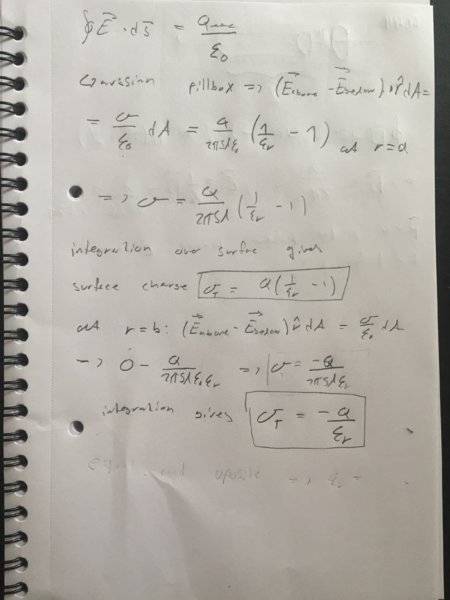 ∮ E⃗ · ds⃗ = q_enc / ε₀
Gaussian pillbox => (E⃗_above − E⃗_below) r̂ dA =
= σ/ε₀ dA = Q/(2πsLε₀) (1/εᵣ − 1) at r=a
=> σ = Q/(2πsL) (1/εᵣ − 1)
integration over surface gives
surface charge σ_T = Q(1/εᵣ − 1)
at r=b: (E⃗_above − E⃗_below) r̂ dA = σ/ε₀ dA
-> 0 − Q/(2πsLε₀εᵣ) => σ = −Q/(2πsLεᵣ)
integration gives σ_T = −Q/εᵣ